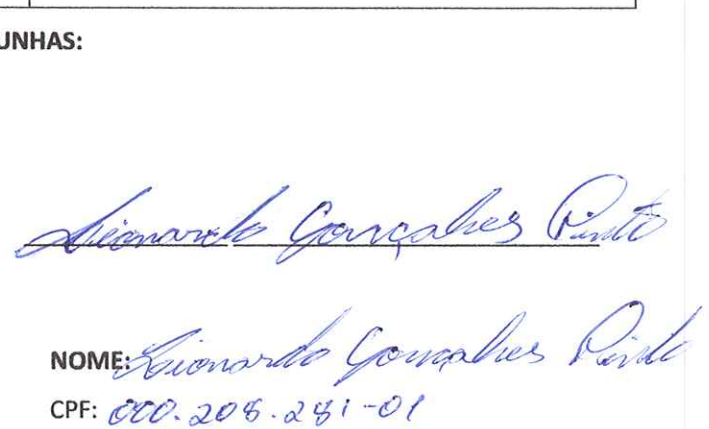 UNHAS:
Lionardo Gonçalves Pinto
NOME: Lionardo Gonçalves Pinto
CPF: 000.208.281-01